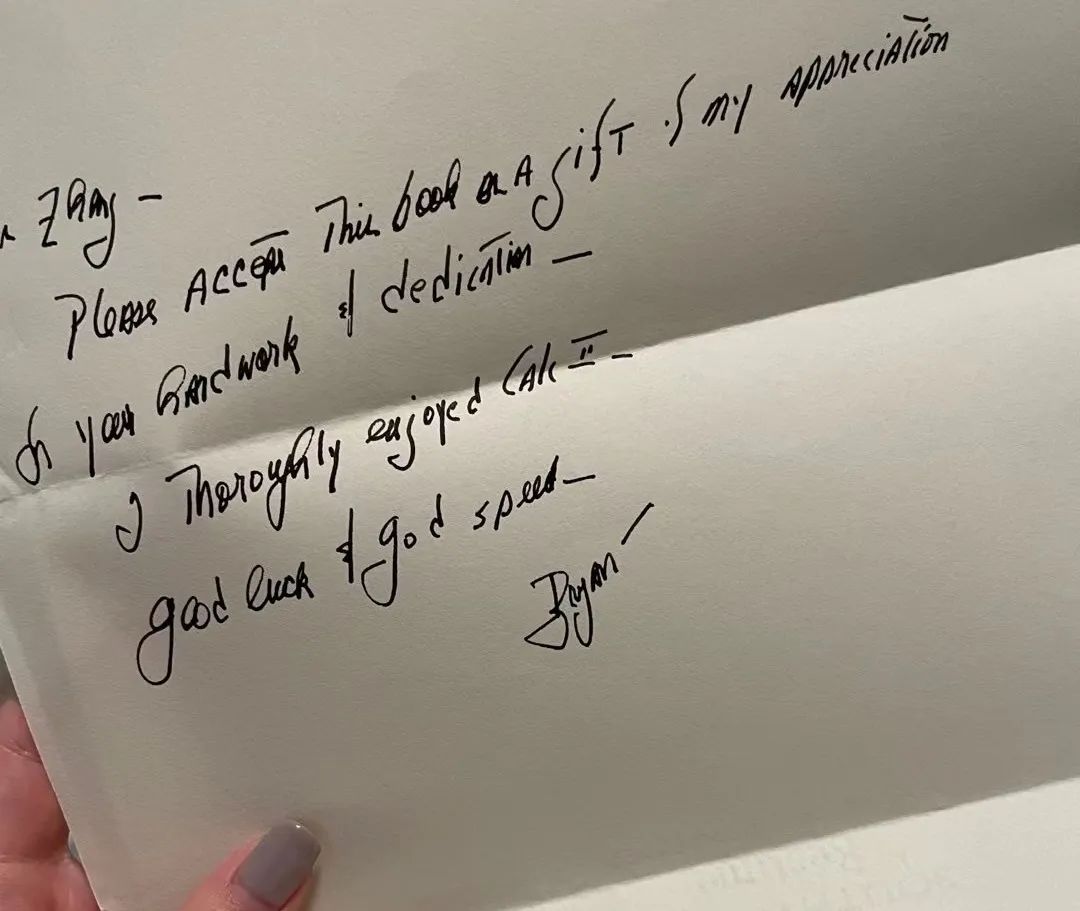 Zhang –
Please Accept This book as A gift of my appreciation
for your hardwork & dedication –
I Thoroughly enjoyed Calc II –
good luck & god speed –
Bryan